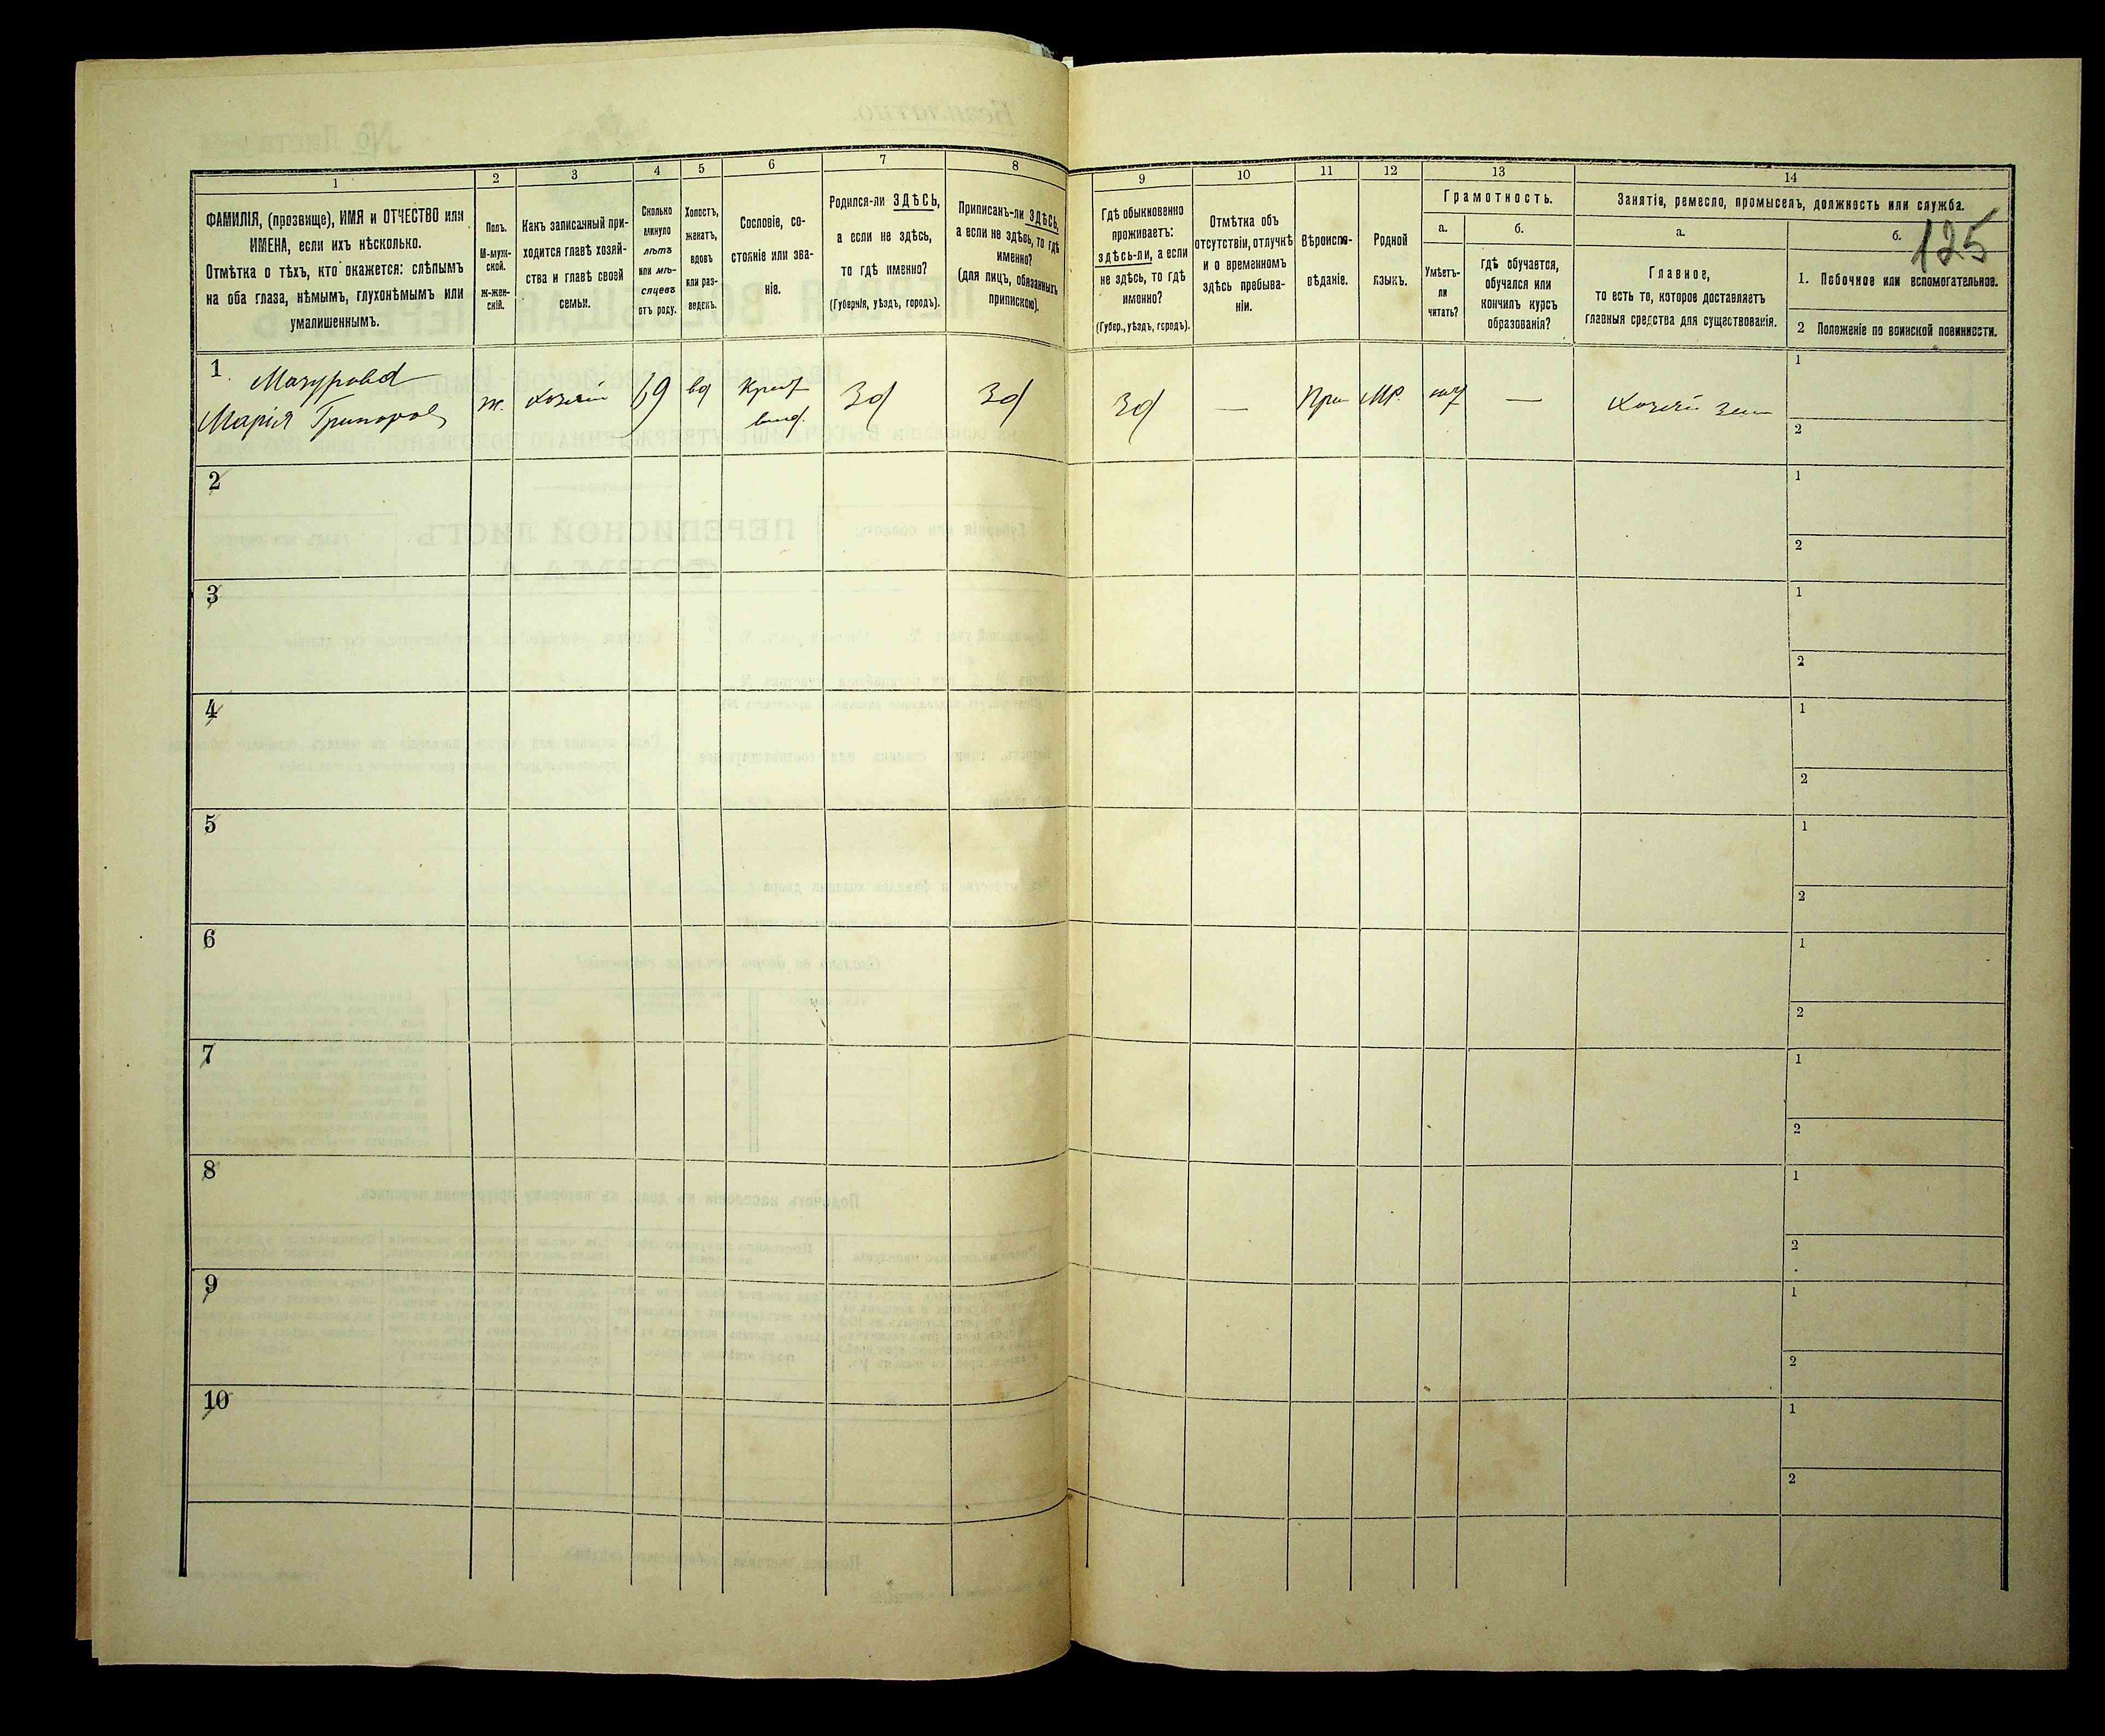 125
1
ФАМИЛІЯ, (прозвище), ИМЯ и ОТЧЕСТВО или
ИМЕНА, если ихъ нѣсколько.
Отмѣтка о тѣхъ, кто окажется: слѣпымъ
на оба глаза, нѣмымъ, глухонѣмымъ или
умалишеннымъ.
2
Полъ.
М-муж-
ской.
Ж-жен-
скій.
3
Какъ записанный при-
ходится главѣ хозяй-
ства и главѣ своей
семьи.
4
Сколько
минуло
лѣтъ
или мѣ-
сяцевъ
отъ роду.
5
Холостъ,
женатъ,
вдовъ
или раз-
веденъ.
6
Сословіе, со-
стояніе или зва-
ніе.
7
Родился-ли ЗДѢСЬ,
а если не здѣсь,
то гдѣ именно?
(Губернія, уѣздъ, городъ).
8
Приписанъ-ли ЗДѢСЬ,
а если не здѣсь, то гдѣ
именно?
(для лицъ, обязанныхъ
припискою).
9
Гдѣ обыкновенно
проживаетъ:
здѣсь-ли, а если
не здѣсь, то гдѣ
именно?
(Губер., уѣздъ, городъ).
10
Отмѣтка объ
отсутствіи, отлучкѣ
и о временномъ
здѣсь пребыва-
ніи.
11
Вѣроиспо-
вѣданіе.
12
Родной
языкъ.
13
Грамотность.
а.
Умѣетъ-
ли
читать?
б.
гдѣ обучается,
обучался или
кончилъ курсъ
образованія?
14
Занятіе, ремесло, промыселъ, должность или служба.
а.
Главное,
то есть то, которое доставляетъ
главныя средства для существованія.
б.
1. Побочное или вспомогательное.
2 Положеніе по воинской повинности.
1
Мазурова
Марія Григоров
ж.
хозяй
69
вд
Крест
влад.
Зд
Зд
Зд
—
Пра
Мр.
нѣт
—
Хозяй зем
1
2
2
1
2
3
1
2
4
1
2
5
1
2
6
1
2
7
1
2
8
1
2
9
1
2
10
1
2